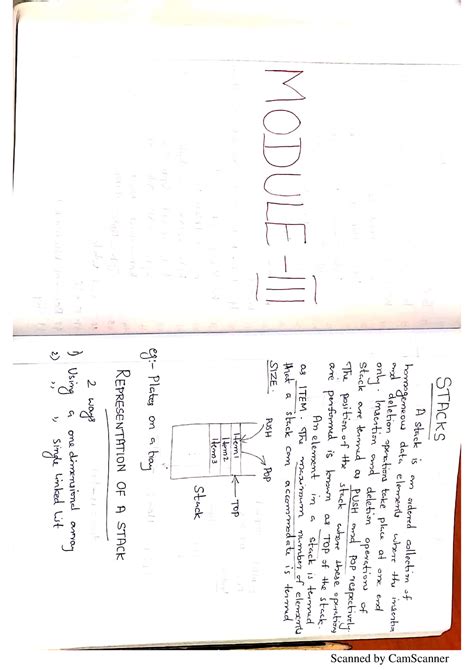 MODULE-III
STACKS
A stack is an ordered collection of
homogeneous data elements where the insertion
and deletion operations take place at one end
only. Insertion and deletion operations of
stack are termed as PUSH and POP respectively.
The position of the stack where these operations
are performed is known as TOP of the stack.
An element in a stack is termed
as ITEM. The maximum number of elements
that a stack can accommodate is termed
SIZE.
PUSH
POP
Item1
Item2
Item3
TOP
Stack
eg:- Plates on a tray
REPRESENTATION OF A STACK
2 ways
1) Using a one dimensional array
2) ,, ,, Single linked list
Scanned by CamScanner